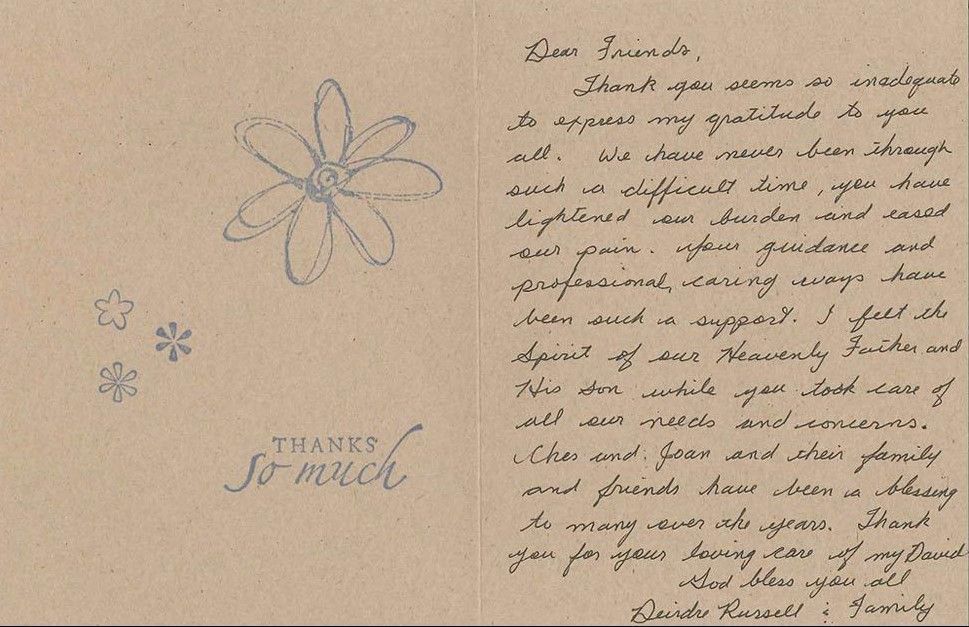 THANKS
so much
Dear Friends,
Thank you seems so inadequate
to express my gratitude to you
all. We have never been through
such a difficult time, you have
lightened our burden and eased
our pain. Your guidance and
professional, caring ways have
been such a support. I felt the
Spirit of our Heavenly Father and
His son while you took care of
all our needs and concerns.
Ches and Joan and their family
and friends have been a blessing
to many over the years. Thank
you for your loving care of my David
God bless you all
Deirdre Russell & Family